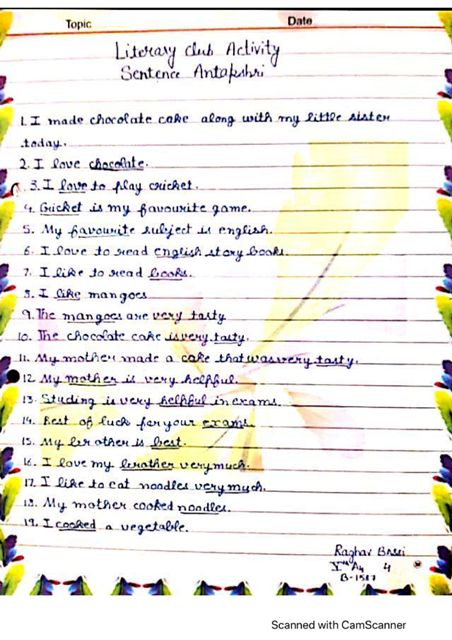 Topic Date
Literary club Activity
Sentence Antakshri
1. I made chocolate cake along with my little sister
today.
2. I love chocolate.
3. I love to play cricket.
4. Cricket is my favourite game.
5. My favourite subject is english.
6. I love to read english story books.
7. I like to read books.
8. I like mangoes
9. The mangoes are very tasty
10. The chocolate cake is very tasty.
11. My mother made a cake that was very tasty.
12. My mother is very helpful.
13. Studing is very helpful in exams.
14. Best of luck for your exams.
15. My brother is best.
16. I love my brother very much.
17. I like to eat noodles very much.
18. My mother cooked noodles.
19. I cooked a vegetable.
Raghav
A4 4
B-1517
Scanned with CamScanner